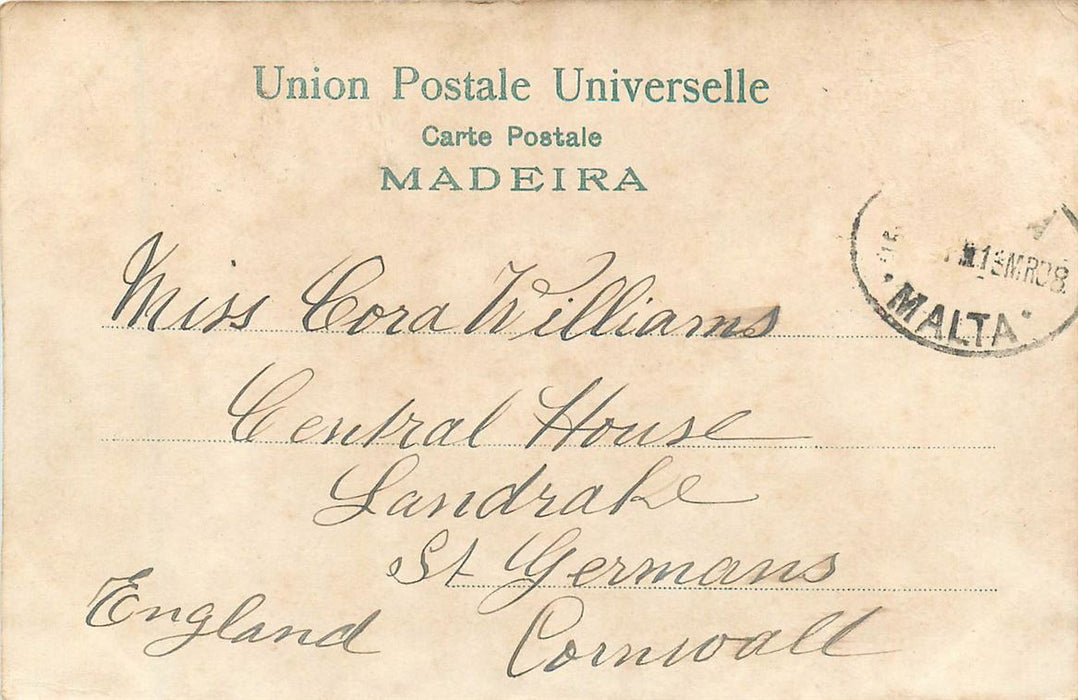 Union Postale Universelle
Carte Postale
MADEIRA
MR08
MALTA
Miss Cora Williams
Central House
Landrake
St Germans
England Cornwall